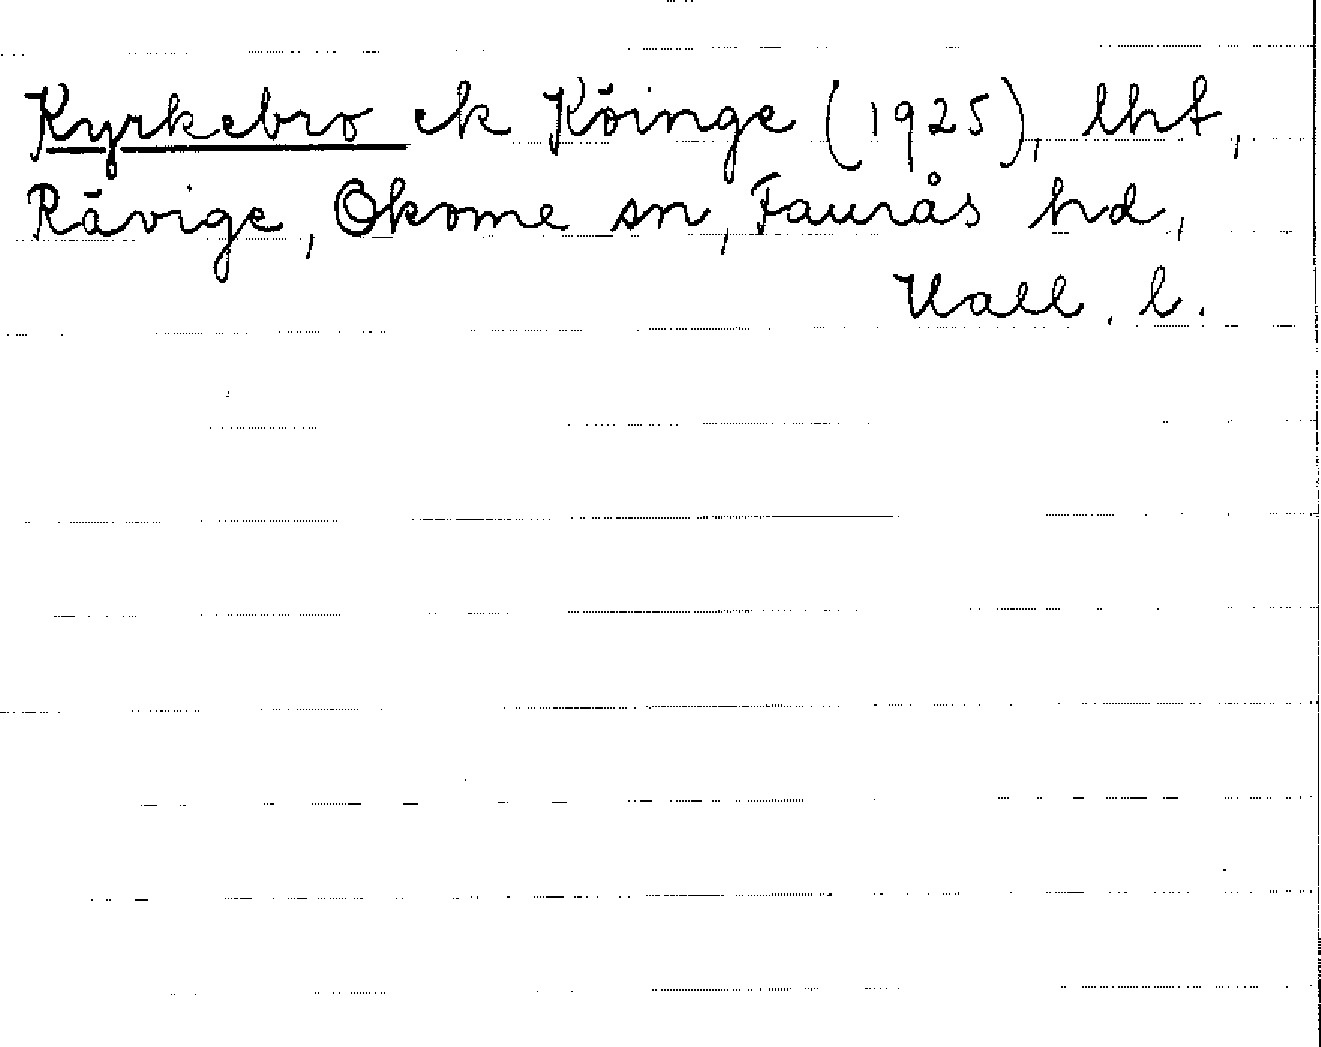 Kyrkebro ek Köinge (1925), lht,
Rävige, Okome sn, Faurås hd,
Hall. l.